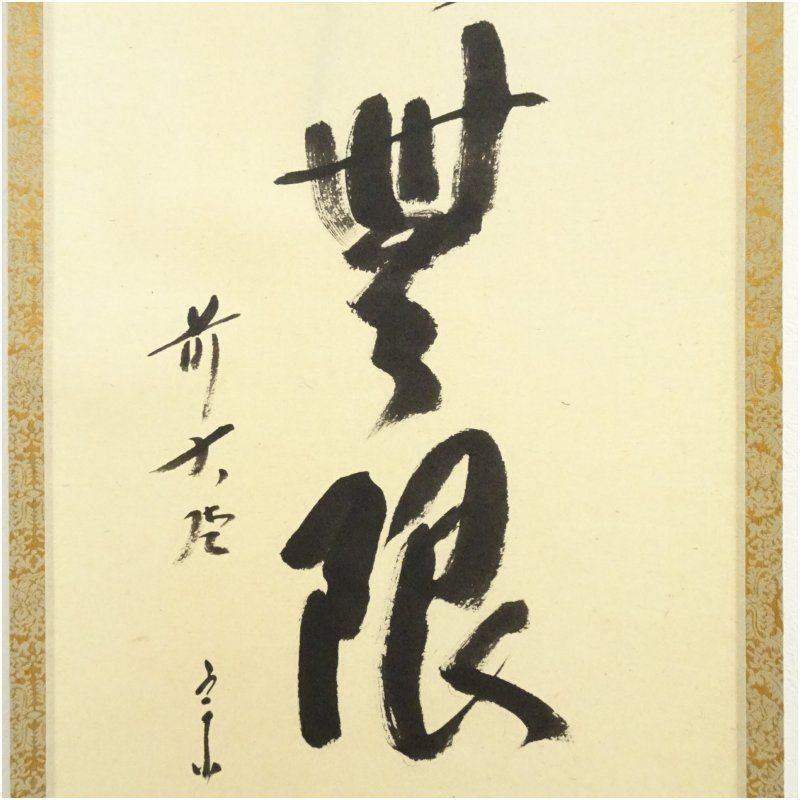 無限
前大徳